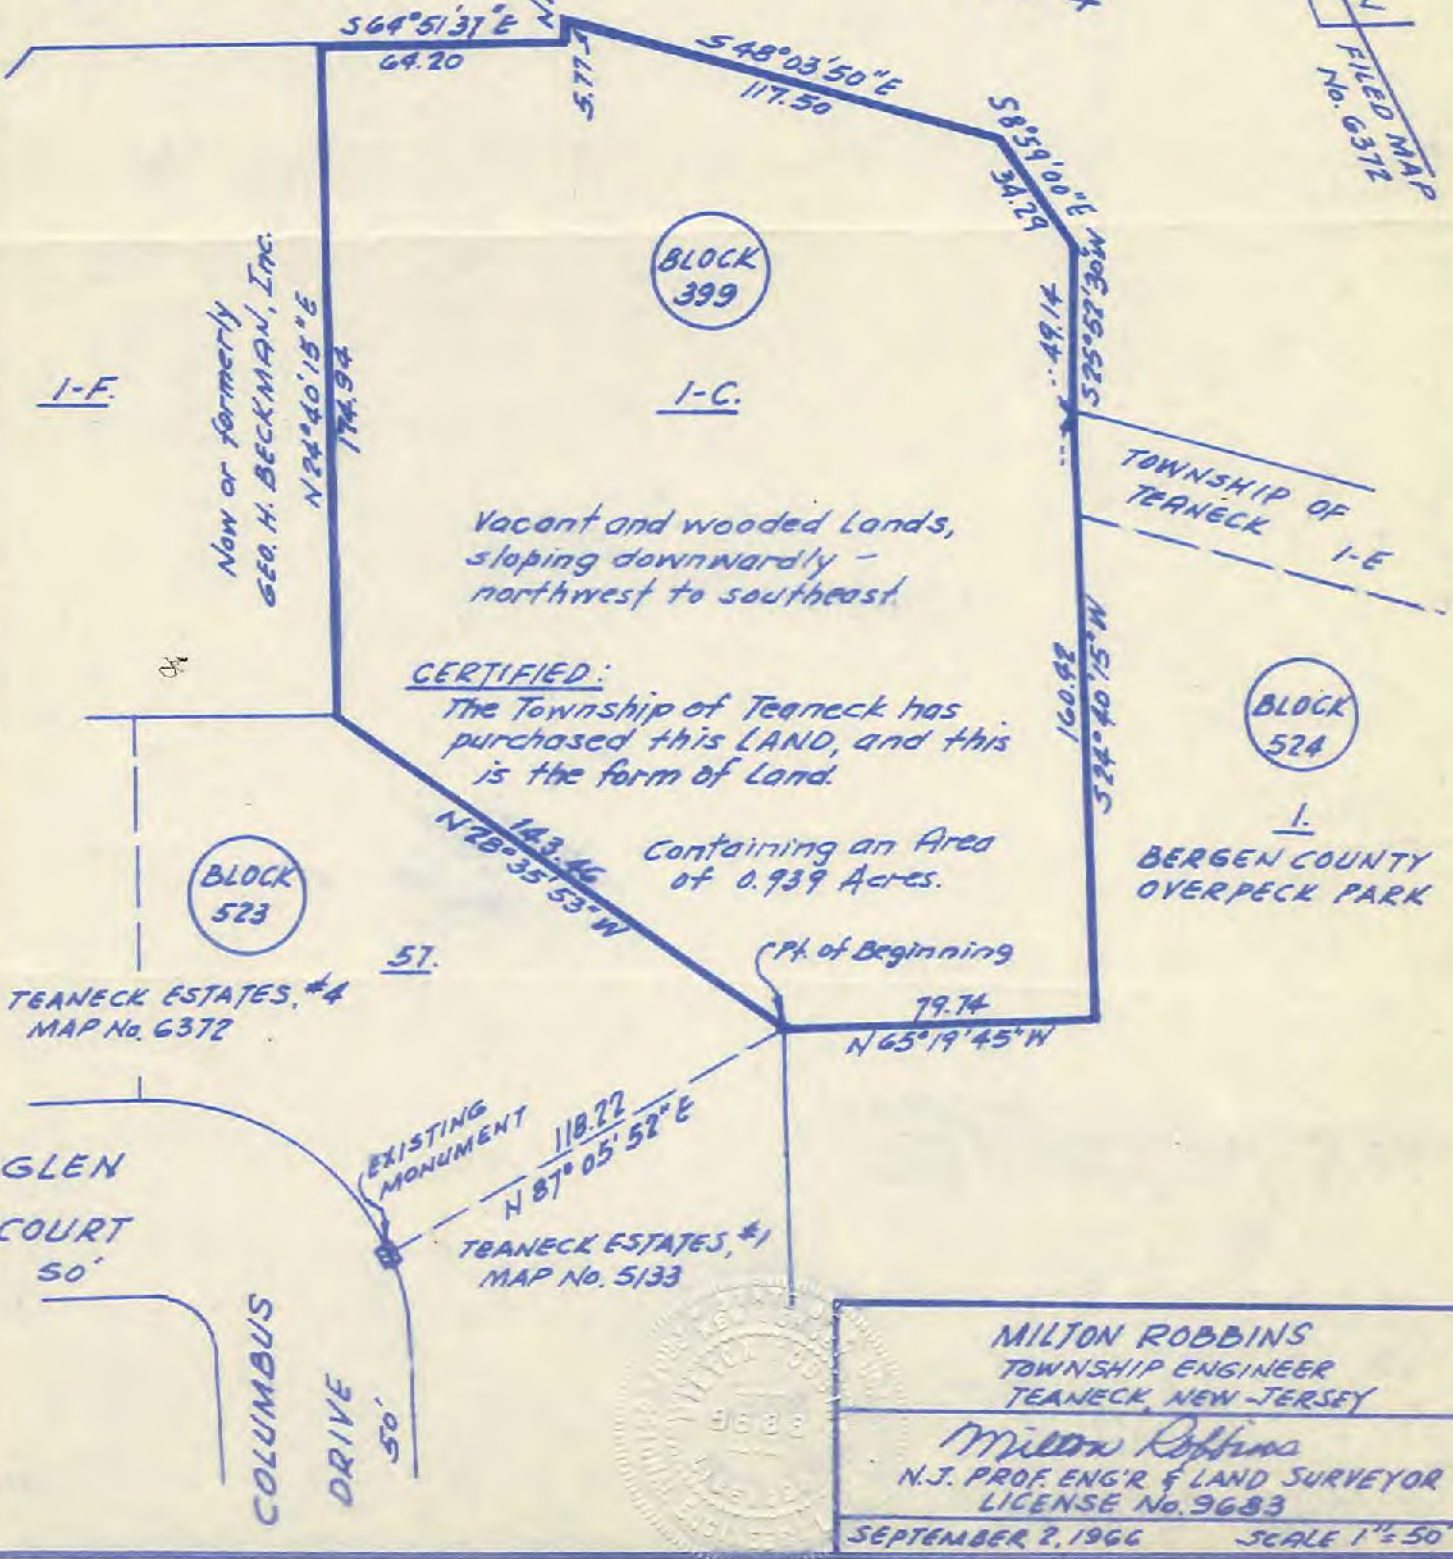 S64°51'37"E
64.20
5.775
S48°03'50"E
117.50
S8°59'00"E
34.29
FILED MAP
No. 6372
BLOCK
399
1-C.
1-F.
Now or formerly
GEO. H. BECKMAN, Inc.
N24°40'15"E
174.94
49.14
S25°52'30"W
TOWNSHIP OF
TEANECK
1-E
Vacant and wooded Lands,
sloping downwardly –
northwest to southeast.
CERTIFIED:
The Township of Teaneck has
purchased this LAND, and this
is the form of Land.
160.42
S24°40'15"W
BLOCK
524
1.
BERGEN COUNTY
OVERPECK PARK
143.46
N28°35'53"W
Containing an Area
of 0.939 Acres.
BLOCK
523
57.
TEANECK ESTATES, #4
MAP No. 6372
Pt. of Beginning
79.74
N65°19'45"W
EXISTING
MONUMENT
118.22
N 87°05'52"E
TEANECK ESTATES, #1
MAP No. 5133
GLEN
COURT
50'
COLUMBUS
DRIVE
50'
MILTON ROBBINS
TOWNSHIP ENGINEER
TEANECK, NEW JERSEY
Milton Robbins
N.J. PROF. ENG'R & LAND SURVEYOR
LICENSE No. 9683
SEPTEMBER 2, 1966 SCALE 1"=50'